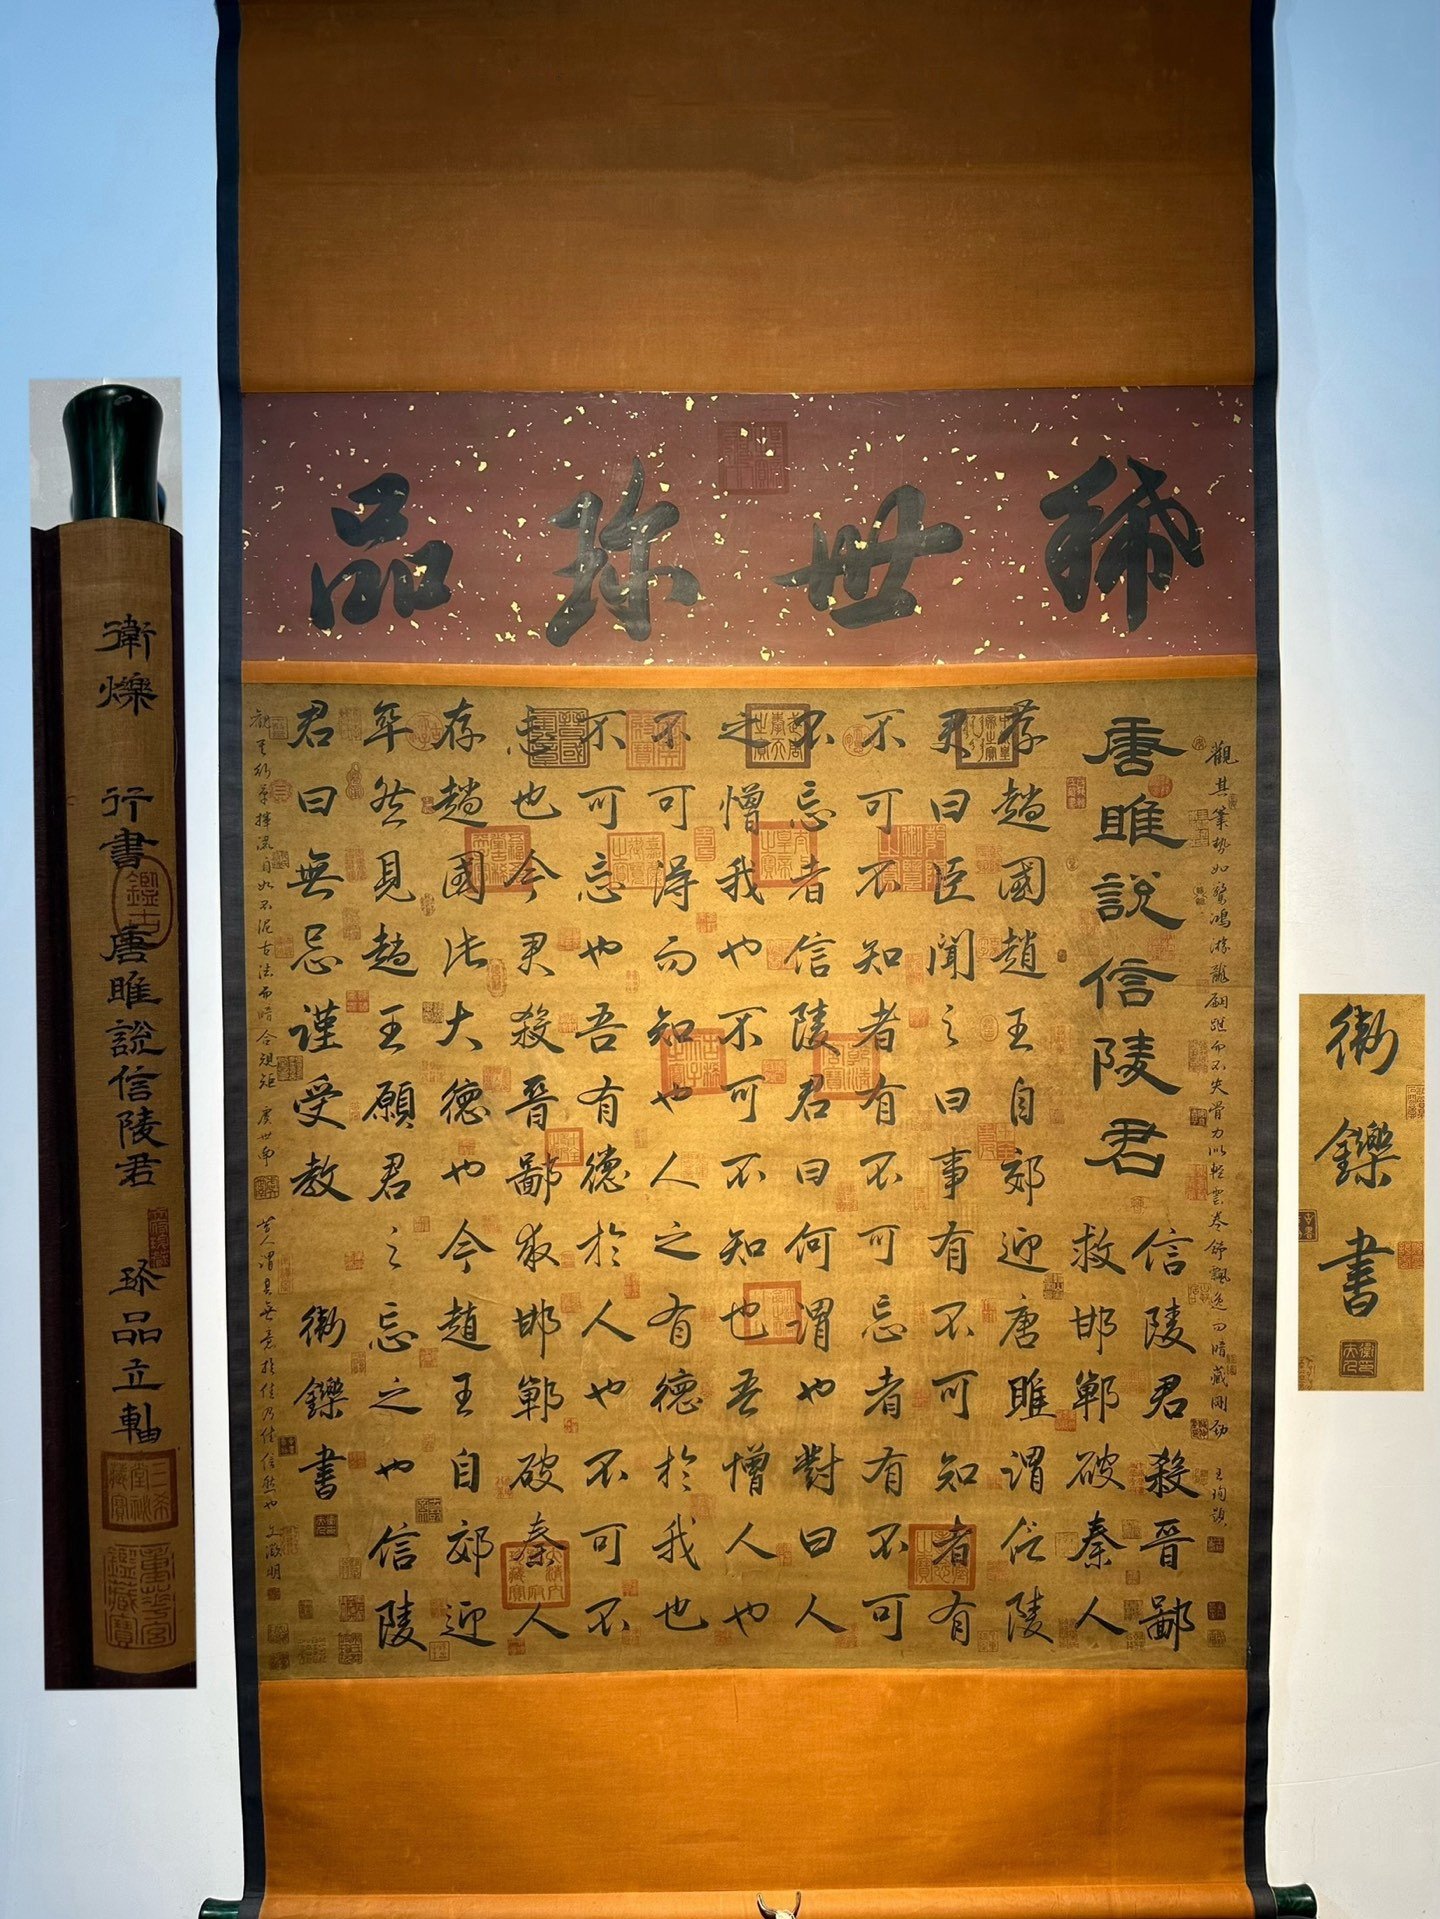 稀世珍品
唐雎說信陵君
信陵君殺晉鄙
救邯鄲破秦人
存趙國趙王自郊迎唐雎謂信陵
君曰臣聞之曰事有不可知者有
不可不知者有不可忘者有不可
不忘者信陵君曰何謂也對曰人
之憎我也不可不知也吾憎人也
不可得而知也人之有德於我也
不可忘也吾有德於人也不可不
忘也今君殺晉鄙救邯鄲破秦人
存趙國此大德也今趙王自郊迎
卒然見趙王願君之忘之也信陵
君曰無忌謹受教 衛鑠書
觀其筆勢如驚鴻游龍翩躚而不失骨力似輕雲卷舒飄逸而暗藏剛勁 王珣題
觀其行筆揮灑自如不泥古法而暗合規矩 虞世南
昔人謂其無意於佳乃佳信然也 文徵明
衛爍 行書 唐雎說信陵君 珎品立軸
衛鑠書